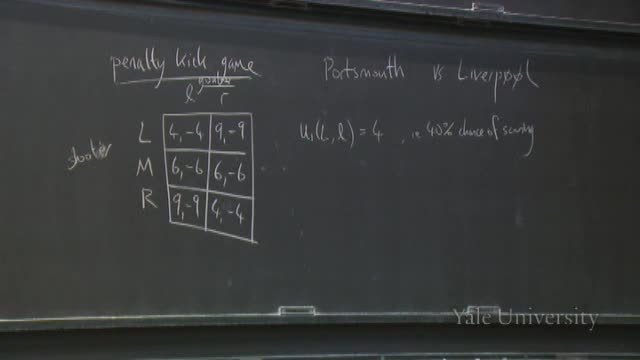 penalty kick game
Portsmouth vs Liverpool
l r
L 4, -4 9, -9
u₁(L, l) = 4 , ie 40% chance of scoring
shooter
M 6, -6 6, -6
R 9, -9 4, -4
Yale University